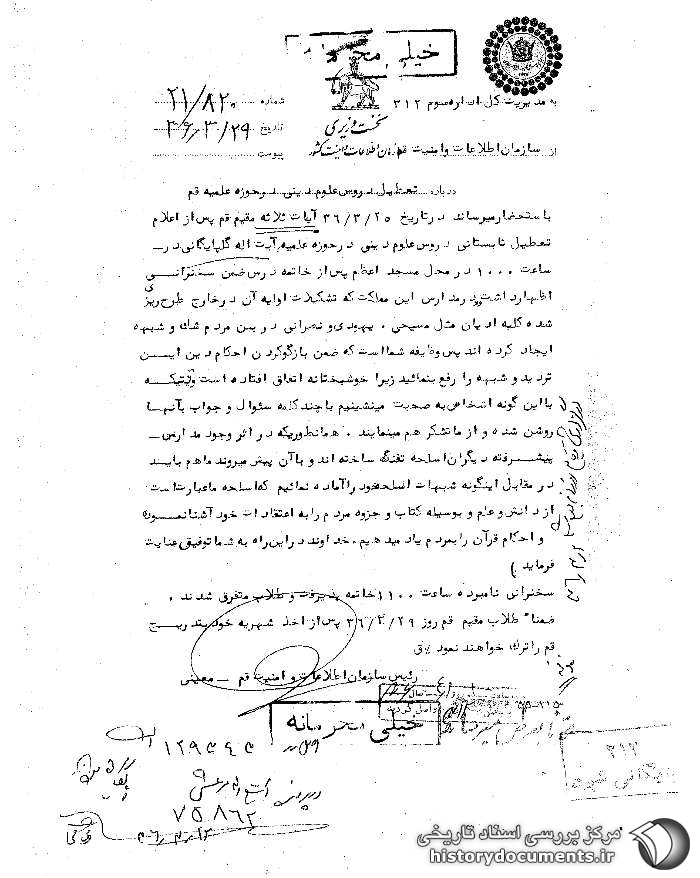 خیلی محرمانه
به مدیریت کل اداره سوم ۳۱۲
شماره ۲۱/۸۲۰
نخست وزیری
تاریخ ۳۶/۳/۲۹
از سازمان اطلاعات و امنیت قم
سازمان اطلاعات و امنیت کشور
پیوست
درباره تعطیل دروس علوم دینی در حوزه علمیه قم
باستحضار میرساند در تاریخ ۳۶/۳/۲۵ آیات ثلاثه مقیم قم پس از اعلام
تعطیل تابستانی دروس علوم دینی در حوزه علمیه آیت اله گلپایگانی در
ساعت ۱۰۰۰ در محل مسجد اعظم پس از خاتمه درس ضمن سخنرانی
اظهار داشت در مدارس این مملکت که تشکلات اولیه آن در خارج طرح ریزی
شده کلیه ادیان مثل مسیحی ، یهودی و نصرانی در بین مردم شک و شبهه
ایجاد کرده اند پس وظیفه شما است که ضمن بازگو کردن احکام دین این
تردید و شبهه را رفع بنمائید زیرا خوشبختانه اتفاق افتاده است وقتیکه
با این گونه اشخاص به صحبت مینشینیم با چند کلمه سئوال و جواب بآنها
روشن شده و از ما تشکر هم مینمایند . همانطوریکه در اثر وجود مدارس
پیشرفته دیگران اسلحه تفنگ ساخته اند و با آن پیش میروند ما هم باید
در مقابل اینگونه شبهات اسلحه خود را آماده نمائیم که اسلحه ما عبارتست
از دانش و علم و بوسیله کتاب و جزوه مردم را به اعتقادات خود آشنا نموده
و احکام قرآن را بمردم یاد میدهیم . خداوند در این راه به شما توفیق عنایت
فرماید )
سخنرانی نامبرده ساعت ۱۱۰۰ خاتمه پذیرفت و طلاب متفرق شدند .
ضمناً طلاب مقیم قم روز ۳۶/۳/۲۹ پس از اخذ شهریه خود بتدریج
قم را ترک خواهند نمود
رئیس سازمان اطلاعات و امنیت قم - معینی
خیلی محرمانه
۳۱۲
بایگانی شود
۷۵۸۶۲
مرکز بررسی اسناد تاریخی
historydocuments.ir